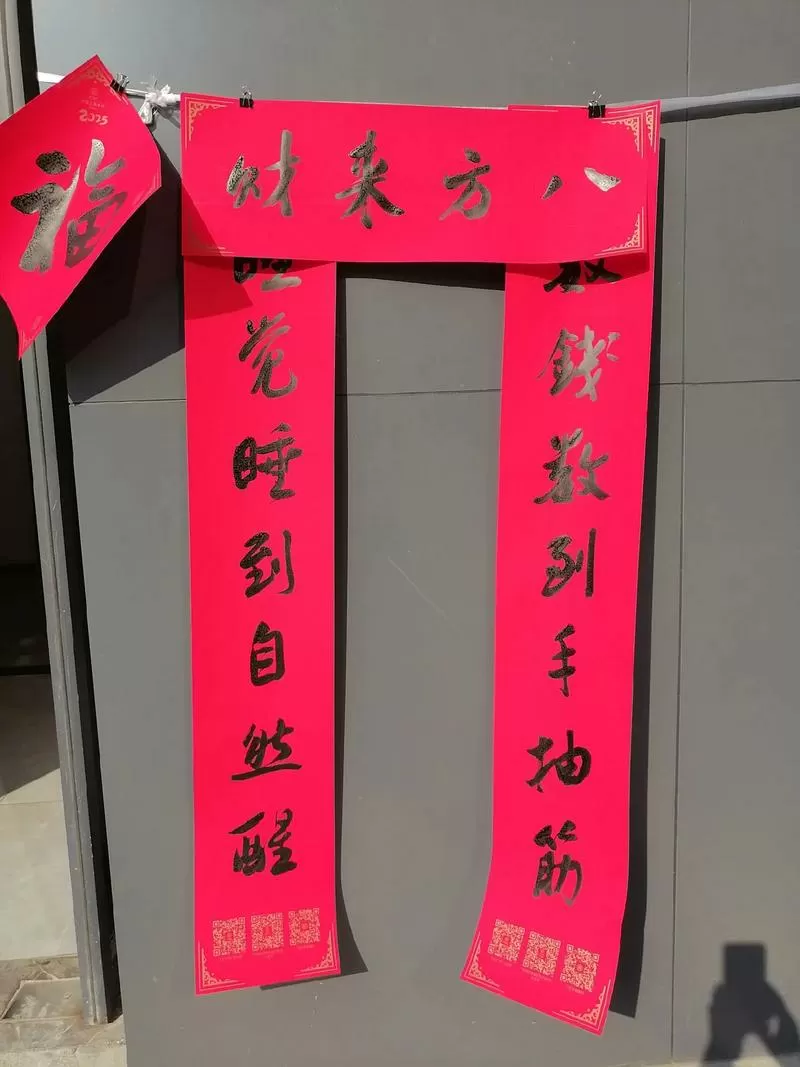 八方来财
数錢数到手抽筋
睡觉睡到自然醒
福
2025